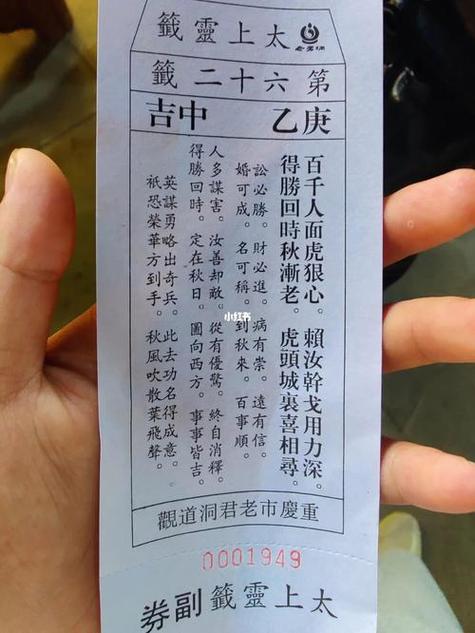 太上靈籤
老君洞
第六十二籤
庚乙 中吉
百千人面虎狼心。賴汝幹戈用力深。
得勝回時秋漸老。虎頭城裏喜相尋。
訟必勝。財必進。病有祟。遠有信。
婚可成。名可稱。到秋來。百事順。
人多謀害。汝善却敵。從有優驚。終自消釋。
得勝回時。定在秋日。圖向西方。事事皆吉。
英謀勇略出奇兵。此去功名得成意。
祇恐榮華方到手。秋風吹散葉飛聲。
小红书
重慶市老君洞道觀
0001949
太上靈籤副券